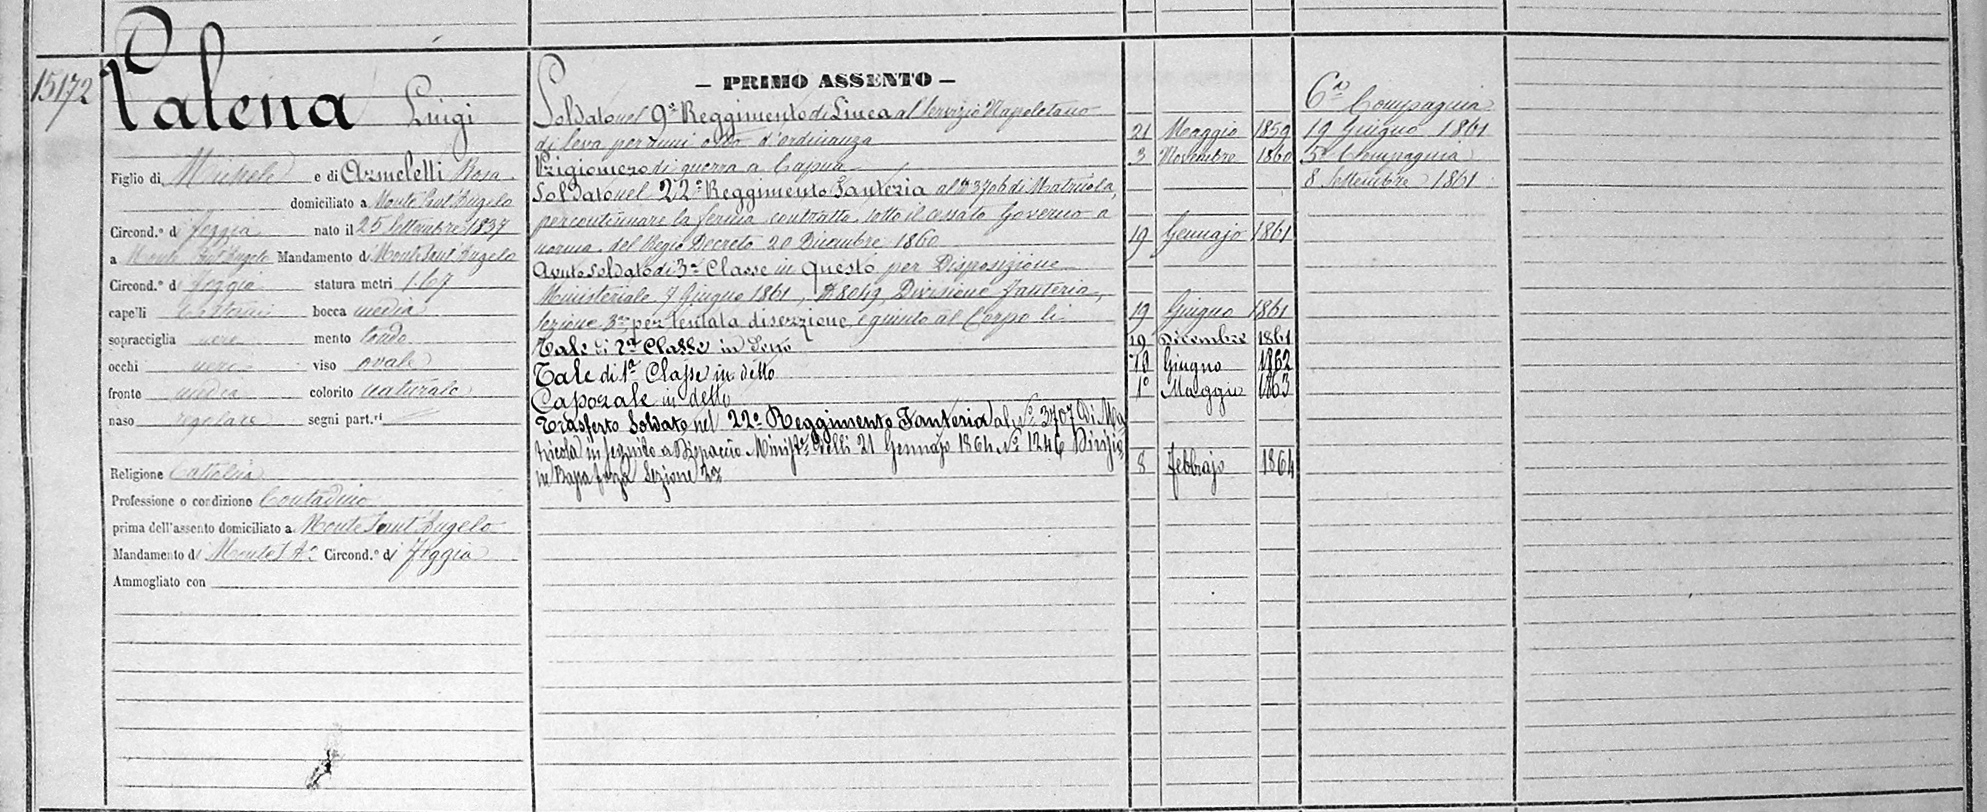 15172
Palena Luigi
Figlio di Michele e di Armeletti Rosa
domiciliato a Monte Sant'Angelo
Circond.° di Foggia nato il 25 Settembre 1837
a Monte Sant'Angelo Mandamento di Monte Sant'Angelo
Circond.° di Foggia statura metri 1.67
capelli castani bocca media
sopracciglia nere mento tondo
occhi neri viso ovale
fronte media colorito naturale
naso regolare segni part.ri
Religione Cattolica
Professione o condizione Contadino
prima dell'assento domiciliato a Monte Sant'Angelo
Mandamento di Monte S. A° Circond.° di Foggia
Ammogliato con
— PRIMO ASSENTO —
Soldato nel 9° Reggimento di Linea al Servizio Napoletano
di leva per anni otto d'ordinanza 21 Maggio 1859
Prigioniero di guerra a Capua 3 Novembre 1860
Soldato nel 22° Reggimento Fanteria al N° 3706 di Matricola,
per continuare la ferma contratta sotto il cessato Governo a
norma del Regio Decreto 20 Dicembre 1860 19 Gennajo 1861
Avuto soldato di 3a Classe in questo per Disposizione
Ministeriale 7 Giugno 1861, N° 8049, Divisione Fanteria,
Sezione 3a, per tentata diserzione, e giunto al Corpo li 19 Giugno 1861
Tale di 2a Classe in detto 19 Dicembre 1861
Tale di 1a Classe in detto 19 Giugno 1862
Caporale in detto 1° Maggio 1863
Trasferto Soldato nel 22° Reggimento Fanteria al N° 3707 di Ma
tricola in seguito a Dispaccio Minist.le delli 21 Gennajo 1864 N° 1246 Divisio
ne Bassa forza Sezione 2a 8 Febbrajo 1864
6a Compagnia
19 Giugno 1861
5a Compagnia
8 Settembre 1861